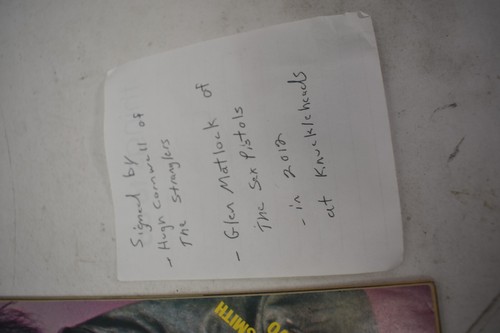 Signed by
- Hugh Cornwell of
The Stranglers
- Glen Matlock of
The Sex Pistols
- in 2012
at Knuckleheads
SMITH